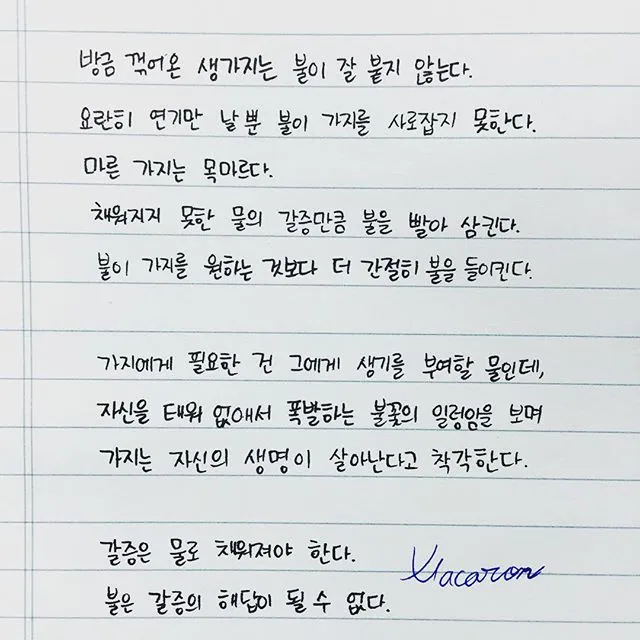 방금 꺾어온 생가지는 불이 잘 붙지 않는다.
요란히 연기만 날 뿐 불이 가지를 사로잡지 못한다.
마른 가지는 목마르다.
채워지지 못한 물의 갈증만큼 불을 빨아 삼킨다.
불이 가지를 원하는 것보다 더 간절히 불을 들이킨다.
가지에게 필요한 건 그에게 생기를 부여할 물인데,
자신을 태워 없애서 폭발하는 불꽃의 일렁암을 보며
가지는 자신의 생명이 살아난다고 착각한다.
갈증은 물로 채워져야 한다.
불은 갈증의 해답이 될 수 없다.
Macaron